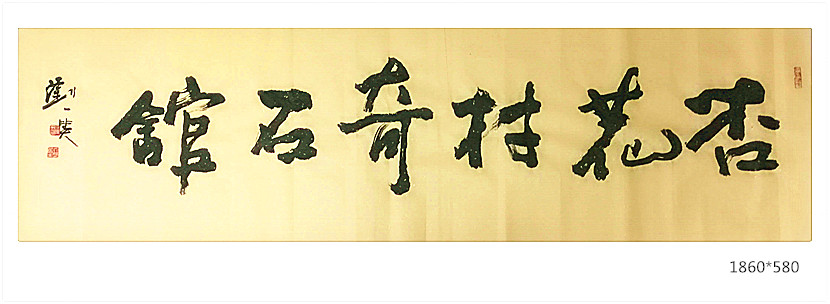 杏花村奇石舘
1860*580